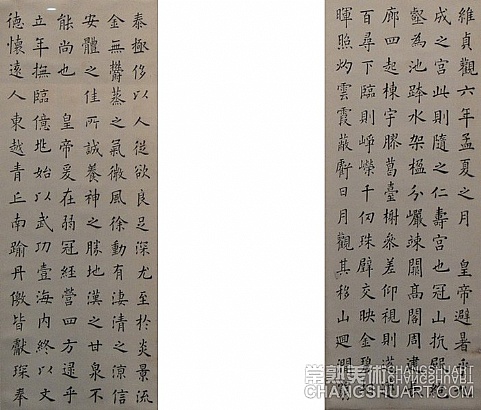 維貞觀六年孟夏之月 皇帝避暑乎
成之宮此則隨之仁壽宮也冠山抗殿絕
壑為池跨水架楹分巖竦闕高閣周建
廊四起棟宇膠葛臺榭參差仰視則迢
百尋下臨則崢嶸千仞珠璧交映金碧
暉照灼雲霞蔽虧日月觀其移山迴澗
泰極侈以人從欲良足深尤至於炎景流
金無欝蒸之氣微風徐動有淒清之涼信
安體之佳所誠養神之勝地漢之甘泉不
能尚也 皇帝爰在弱冠經營四方逮乎
立年撫臨億兆始以武功壹海內終以文
德懷遠人東越青丘南踰丹徼皆獻琛奉
常熟美術
CHANGSHUART.COM